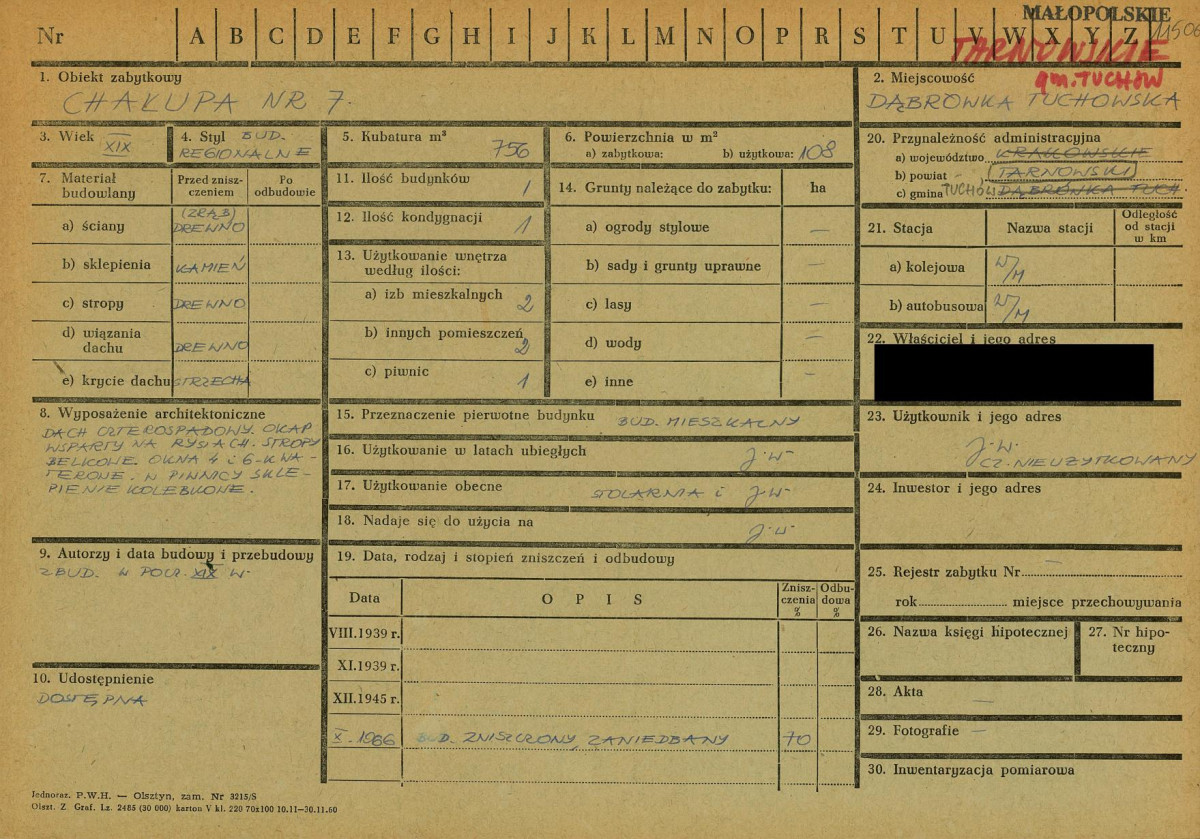 MAŁOPOLSKIE
Nr A B C D E F G H I J K L M N O P R S T U V W X Y Z 11506
TARNOWSKIE
gm. TUCHÓW
1. Obiekt zabytkowy
CHAŁUPA NR 7.
2. Miejscowość
DĄBRÓWKA TUCHOWSKA
3. Wiek XIX
4. Styl BUD.
REGIONALNE
5. Kubatura m³ 756
6. Powierzchnia w m²
a) zabytkowa: b) użytkowa: 108
20. Przynależność administracyjna
a) województwo KRAKOWSKIE
b) powiat TARNOWSKI
c) gmina TUCHÓW DĄBRÓWKA TUCH.
7. Materiał budowlany
Przed zniszczeniem
Po odbudowie
a) ściany (ZRĄB) DREWNO
b) sklepienia KAMIEŃ
c) stropy DREWNO
d) wiązania dachu DREWNO
e) krycie dachu STRZECHA
11. Ilość budynków 1
12. Ilość kondygnacji 1
13. Użytkowanie wnętrza
według ilości:
a) izb mieszkalnych 2
b) innych pomieszczeń 2
c) piwnic 1
14. Grunty należące do zabytku: ha
a) ogrody stylowe —
b) sady i grunty uprawne —
c) lasy —
d) wody —
e) inne —
21. Stacja Nazwa stacji Odległość od stacji w km
a) kolejowa W/M
b) autobusowa W/M
22. Właściciel i jego adres
8. Wyposażenie architektoniczne
DACH CZTEROSPADOWY. OKAP
WSPARTY NA RYSIACH. STROPY
BELKOWE. OKNA 4 i 6-KWA-
TEROWE. W PIWNICY SKLE-
PIENIE KOLEBKOWE.
15. Przeznaczenie pierwotne budynku BUD. MIESZKALNY
16. Użytkowanie w latach ubiegłych j.w.
17. Użytkowanie obecne STOLARNIA i j.w.
18. Nadaje się do użycia na j.w.
23. Użytkownik i jego adres
j.w.
CZ. NIEUŻYTKOWANY
24. Inwestor i jego adres
9. Autorzy i data budowy i przebudowy
ZBUD. W POŁ. XIX W.
10. Udostępnienie
DOSTĘPNA
19. Data, rodzaj i stopień zniszczeń i odbudowy
Data OPIS Zniszczenia % Odbudowa %
VIII.1939 r.
XI.1939 r.
XII.1945 r.
X. 1966 BUD. ZNISZCZONY, ZANIEDBANY 70
25. Rejestr zabytku Nr —
rok miejsce przechowywania
26. Nazwa księgi hipotecznej
27. Nr hipoteczny
28. Akta —
29. Fotografie —
30. Inwentaryzacja pomiarowa
Jednoraz. P.W.H. — Olsztyn, zam. Nr 3215/S
Olszt. Z. Graf. Lz. 2485 (30 000) karton V kl. 220 70x100 10.11—30.11.60